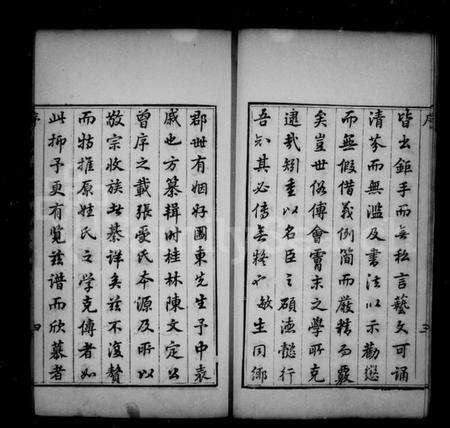 序 三
皆出鉅手而無私言藝文可誦
清芬而無濫及書法以示勸懲
而無假借義例簡而嚴精而覈
矣豈世俗傅會膚末之學所克
逮哉矧重以名臣之碩德懿行
吾知其必傳無也敏生同鄉
郡世有姻好園東先生予中表
戚也方纂輯時桂林陳文定公
曾序之載張受氏本源及所以
敬宗收族者綦詳矣茲不復贅
而特推原姓氏之學克傳者如
此抑予更有覽茲譜而欣慕者
序 四